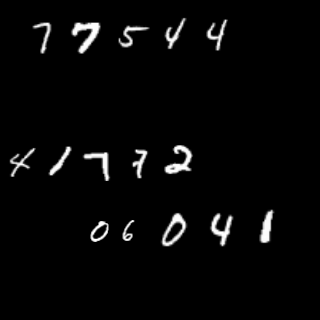 77544
41772
06041